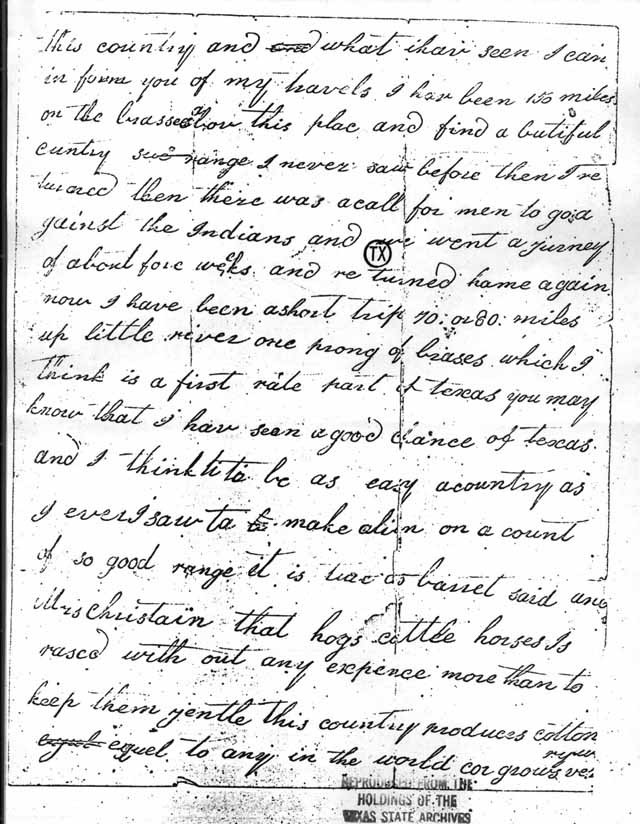 this country and and what ihav seen I can
in form you of my travels I hav been 150 miles
on the brasses abov this plac and find a butiful
cuntry such range I never saw before then I re
turned then there was acall for men to go a
gainst the Indians and we went a jurney
TX
of about fore weeks and re turned home again
now I have been ashort trip 70. or 80. miles
up little river one prong of brases which I
think is a first rate part of texas you may
know that I hav seen agood chance of texas
and I think it to be as easy acountry as
I ever I saw ta to make alivin on a count
of so good range it is true as barret said and
Mrs Christain that hogs cattle horses Is
rased with out any expence more than to
keep them gentle this country produces cotton
equl equel to any in the world cor grows
REPRODUCED FROM THE
HOLDINGS OF THE
TEXAS STATE ARCHIVES